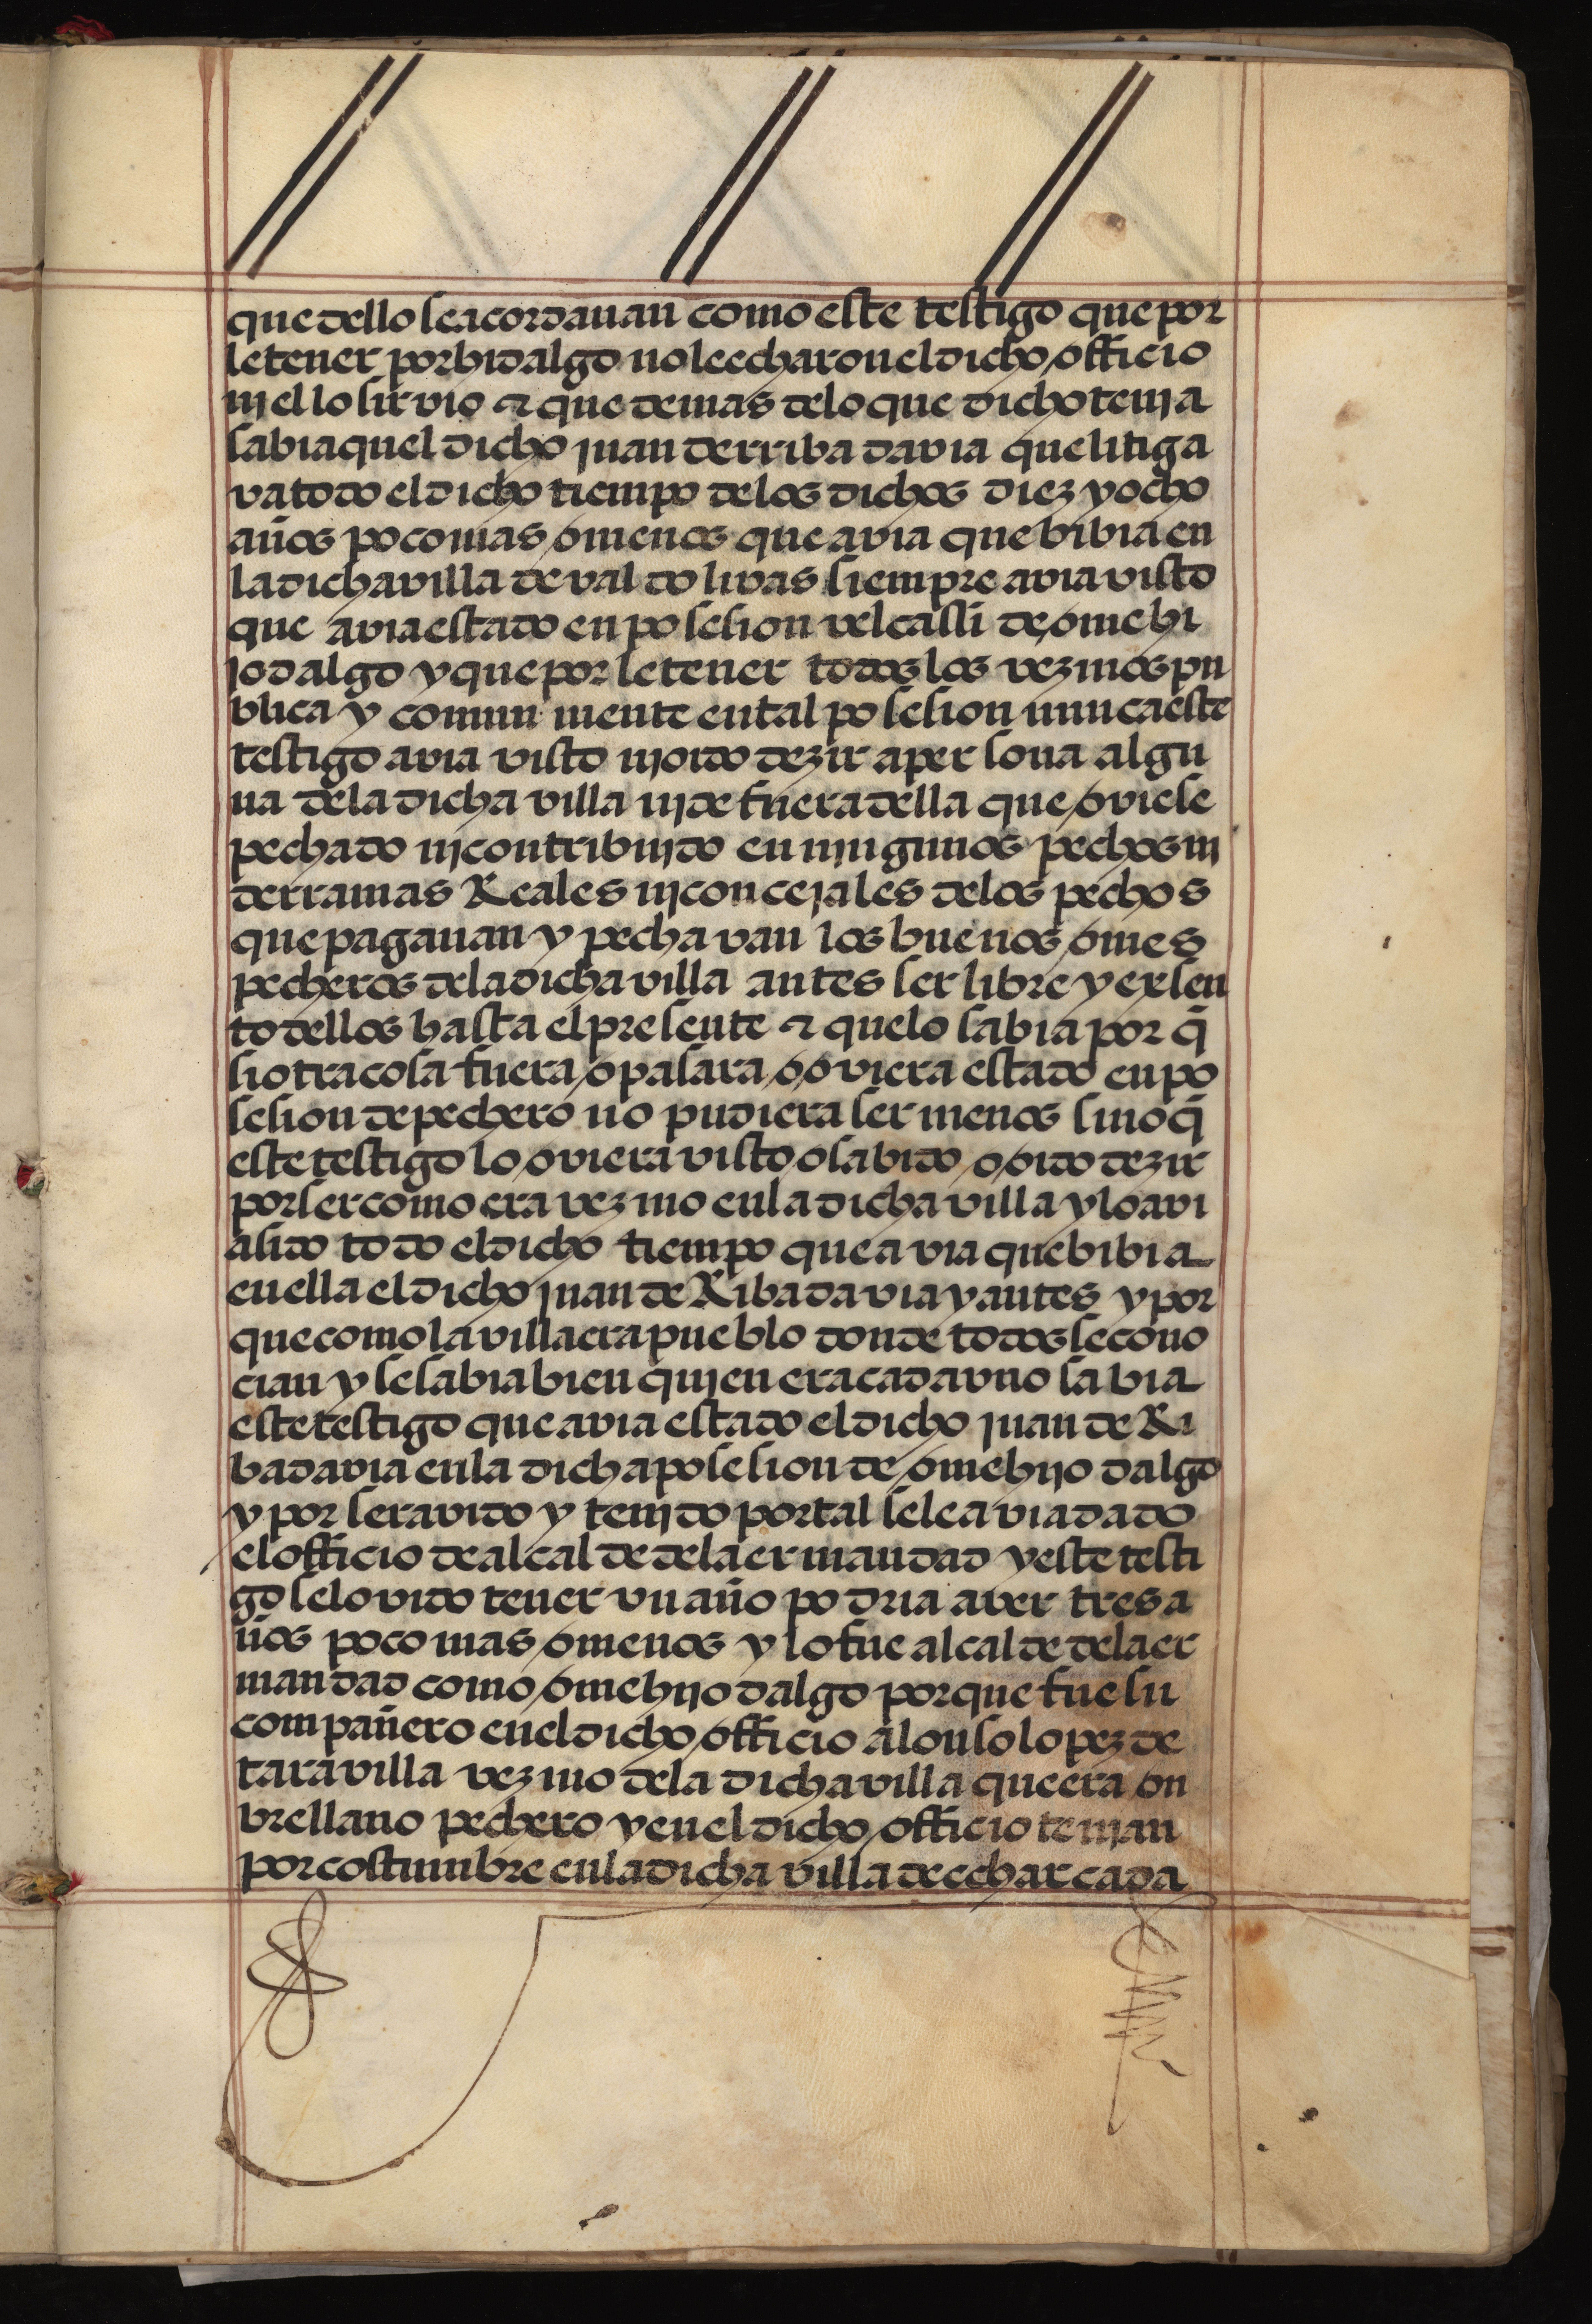 que dello se acordauan como este testigo que por
le tener por hidalgo no le echaron el dicho officio
nj el lo siruio & que demas de lo que dicho tenja
sabia quel dicho juan de rribadavia que litiga
va todo el dicho tiempo de los dichos diez y ocho
años poco mas o menos que avia que bibia en
la dicha villa de valdolivas siempre avia visto
que avia estado en posesion vel casi de ome hi
jodalgo y que por le tener todos los vezinos pu
blica y comun mente en tal posesion nunca este
testigo avia visto nj oido dezir a persona algu
na de la dicha villa nj de fuera della que oviese
pechado nj contribujdo en njngunos pechos nj
derramas Reales nj concejales de los pechos
que pagauan y pechavan los buenos omes
pecheros de la dicha villa antes ser libre y exsen
to dellos hasta el presente & que lo sabia por q̃
si otra cosa fuera o pasara o oviera estado en po
sesion de pechero no pudiera ser menos sino q̃
este testigo lo oviera visto o sabido o oido dezir
por ser como era vezino en la dicha villa y lo avi
a sido todo el dicho tiempo que avia que bibia
en ella el dicho juan de Ribadavia y antes y por
que como la villa era pueblo donde todos se cono
cian y se sabia bien quien era cada vno sabia
este testigo que avia estado el dicho juan de Ri
badavia en la dicha posesion de ome hijodalgo
y por ser avido y tenjdo por tal se le avia dado
el officio de alcalde de la ermandad y este testi
go se lo vido tener vn año podria aver tres a
ños poco mas o menos y lo fue alcalde de la er
mandad como ome hijodalgo porque fue su
compañero en el dicho officio alonso lopez de
taravilla vezino de la dicha villa que era on
bre llano pechero y en el dicho officio tenjan
por costumbre en la dicha villa de echar cada